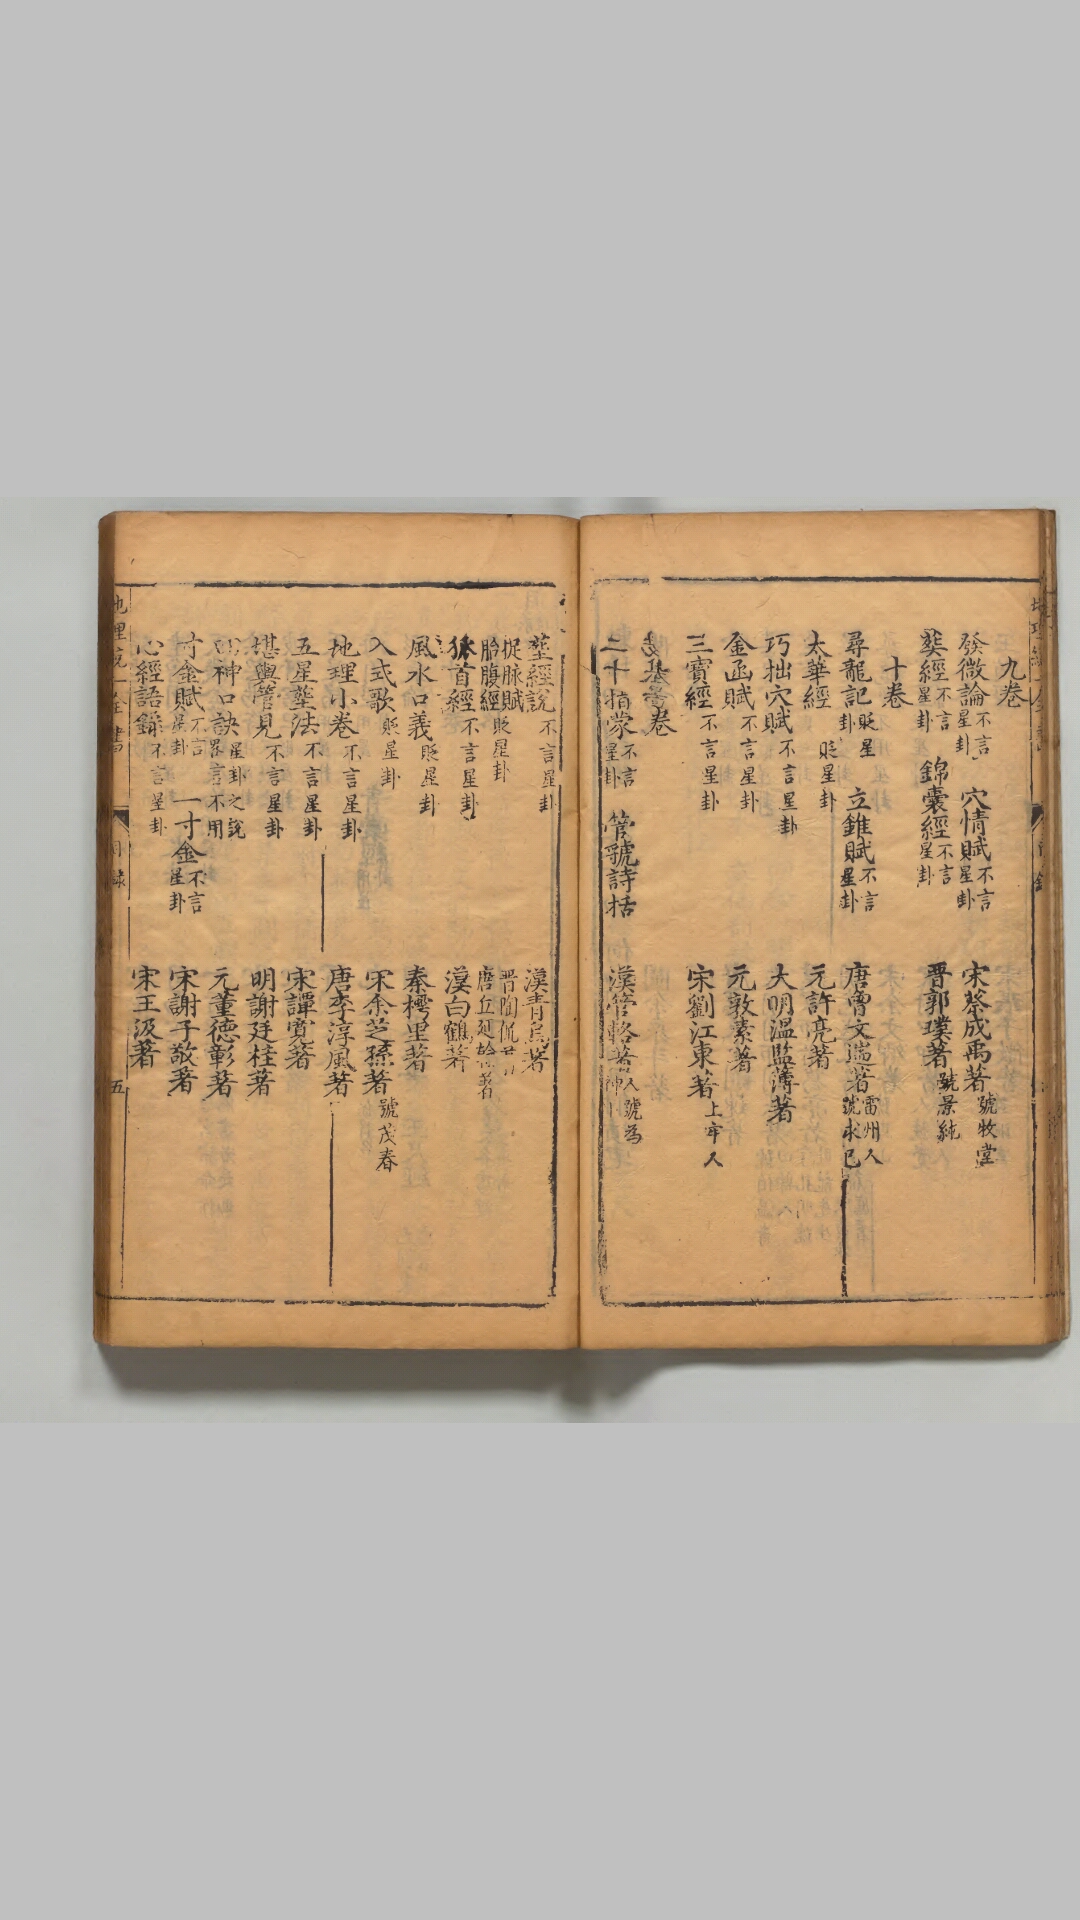 九卷
發微論不言星卦 穴情賦不言星卦 宋蔡成禹著號牧堂
葬經不言星卦 錦囊經不言星卦 晋郭璞著號景純
十卷
尋龍記貶星卦 立錐賦不言星卦 唐曾文遄著雷州人號求已
太華經貶星卦 元許亮著
巧拙穴賦不言星卦 大明溫監簿著
金函賦不言星卦 元敦素著
三寶經不言星卦 宋劉江東著上牢人
卷
二十指蒙不言星卦 管號詩括 漢管輅著人號為神
塟經說不言星卦 漢青烏著
捉脉賦貶星卦 晋陶侃
胎腹經 唐丘延 著
狐首經不言星卦 漢白鶴著
風水口義貶星卦 秦樗里著
入式歌貶星卦 宋余芝孫著號茂春
地理小卷不言星卦 唐李淳風著
五星塟法不言星卦 宋譚寬著
堪輿管見不言星卦 明謝廷桂著
神口訣星卦之說畧言不用 元董德彰著
寸金賦不言星卦 一寸金不言星卦 宋謝子敬著
心經語錄不言星卦 宋王汲著
地理統一全書 目錄 五